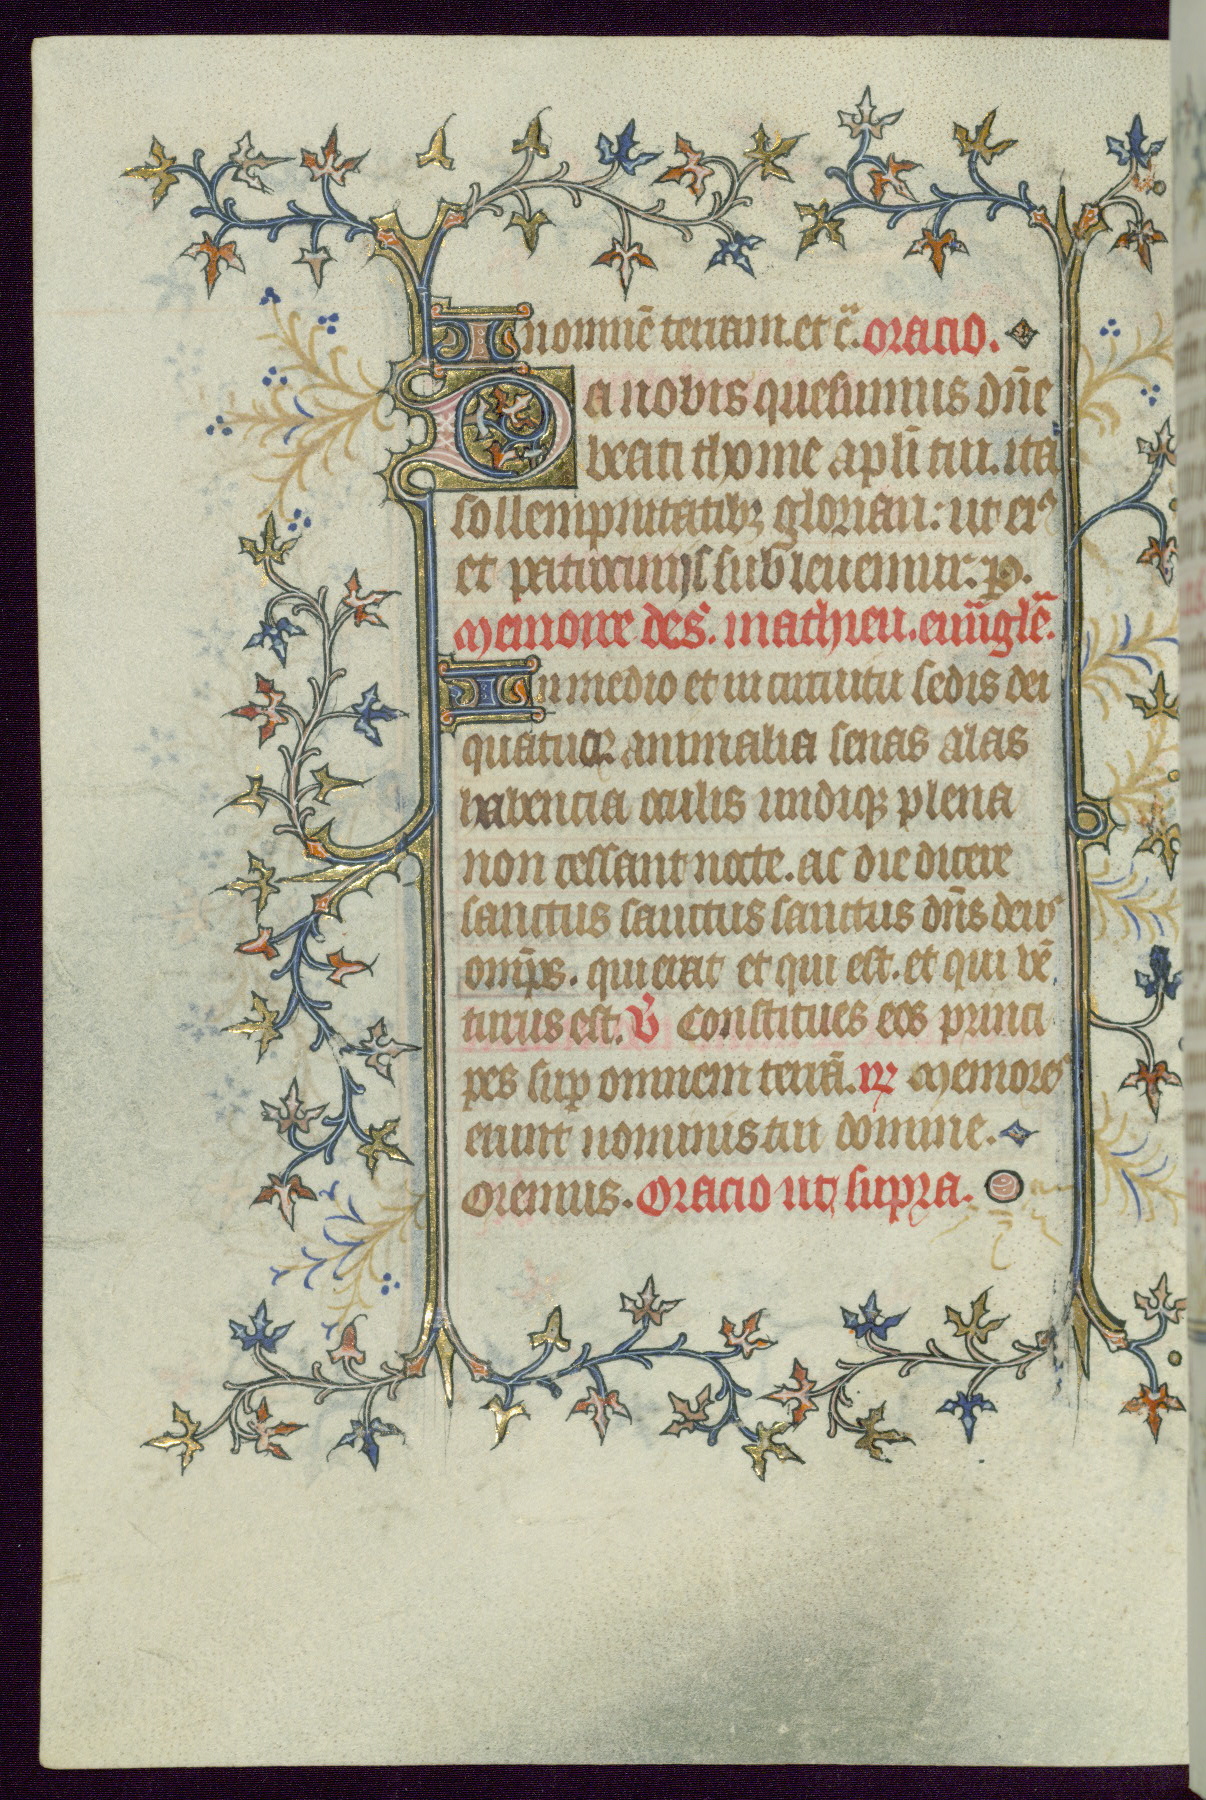 In omnē terram. et c̄. oracio.
Da nobis quesumus dn̄e
beati thome apl̄i tui. ita
sollempnitatibꝫ gloriari: ut eiꝰ
et patrociniis subleuemur. p.
Memoire de s. mathieu. euūgl̄e.
In medio et in circuitu sedis dei
quatuor animalia senas alas
habencia oculis undiqꝫ plena
non cessant nocte. ac die dicere
sanctus sanctus sanctus dn̄s deus
omp̄s. qui erat et qui est. et qui vē
turus est. V̄ Constitues eos princi
pes suꝑ omnem terrā. ꝶ Memores
erunt nominis tui domine.
Oremus. Oracio ut supra.